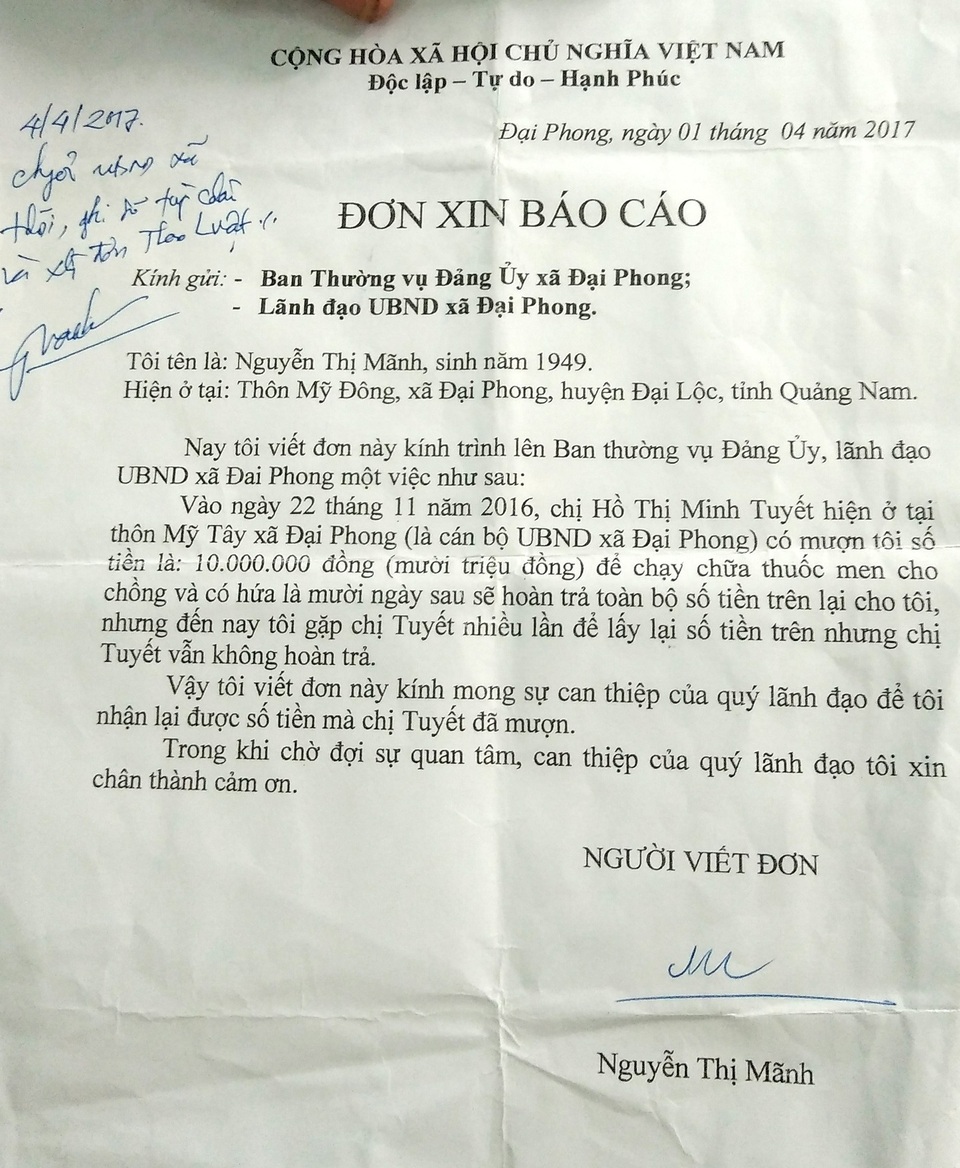 CỘNG HÒA XÃ HỘI CHỦ NGHĨA VIỆT NAM
Độc lập – Tự do – Hạnh Phúc
4/4/2017.
Đại Phong, ngày 01 tháng 04 năm 2017
xã
và xử đơn Theo Luật
ĐƠN XIN BÁO CÁO
Kính gửi: - Ban Thường vụ Đảng Ủy xã Đại Phong;
- Lãnh đạo UBND xã Đại Phong.
Tôi tên là: Nguyễn Thị Mãnh, sinh năm 1949.
Hiện ở tại: Thôn Mỹ Đông, xã Đại Phong, huyện Đại Lộc, tỉnh Quảng Nam.
Nay tôi viết đơn này kính trình lên Ban thường vụ Đảng Ủy, lãnh đạo
UBND xã Đai Phong một việc như sau:
Vào ngày 22 tháng 11 năm 2016, chị Hồ Thị Minh Tuyết hiện ở tại
thôn Mỹ Tây xã Đại Phong (là cán bộ UBND xã Đại Phong) có mượn tôi số
tiền là: 10.000.000 đồng (mười triệu đồng) để chạy chữa thuốc men cho
chồng và có hứa là mười ngày sau sẽ hoàn trả toàn bộ số tiền trên lại cho tôi,
nhưng đến nay tôi gặp chị Tuyết nhiều lần để lấy lại số tiền trên nhưng chị
Tuyết vẫn không hoàn trả.
Vậy tôi viết đơn này kính mong sự can thiệp của quý lãnh đạo để tôi
nhận lại được số tiền mà chị Tuyết đã mượn.
Trong khi chờ đợi sự quan tâm, can thiệp của quý lãnh đạo tôi xin
chân thành cảm ơn.
NGƯỜI VIẾT ĐƠN
Nguyễn Thị Mãnh